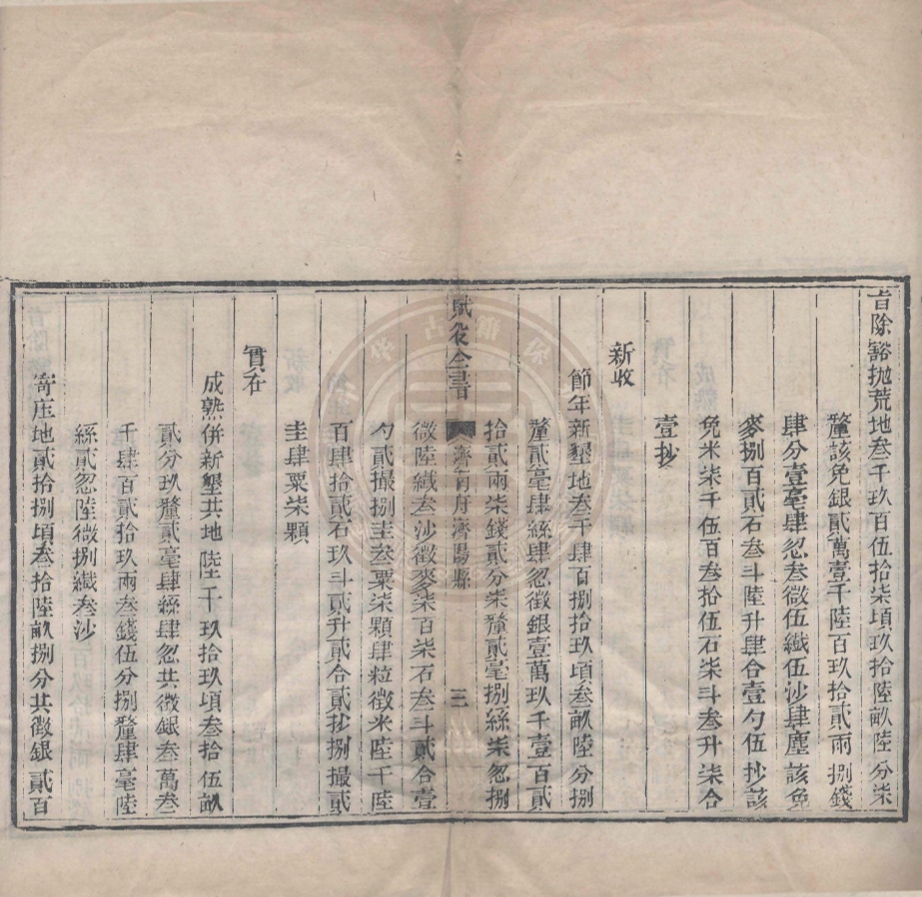 首除豁抛荒地叁千玖百伍拾柒頃玖拾陸畝陸分柒
釐該免銀貳萬壹千陸百玖拾貳兩捌錢
肆分壹毫肆忽叁微伍纖伍沙肆塵該免
麥捌百貳石叁斗陸升肆合壹勺伍抄該
免米柒千伍百叁拾伍石柒斗叁升柒合
壹抄
新收
節年新墾地叁千肆百捌拾玖頃叁畝陸分捌
釐貳毫肆絲肆忽徵銀壹萬玖千壹百貳
拾貳兩柒錢貳分柒釐貳毫捌絲柒忽捌
賦役全書
濟南府濟陽縣
三
微陸纖叁沙徵麥柒百柒石叁斗貳合壹
勺貳撮捌圭叁粟柒顆肆粒徵米陸千陸
百肆拾貳石玖斗貳升貳合貳抄捌撮貳
圭肆粟柒顆
實在
成熟併新墾共地陸千玖拾玖頃叁拾伍畝
貳分玖釐貳毫肆絲肆忽共徵銀叁萬叁
千肆百貳拾玖兩叁錢伍分捌釐肆毫陸
絲貳忽陸微捌纖叁沙
寄庄地貳拾捌頃叁拾陸畝捌分共徵銀貳百